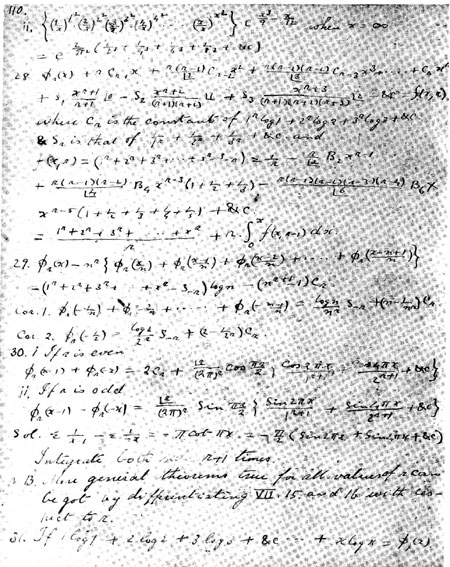 110.
ii. {(1/x)^{1^2} (2/x)^{2^2} (3/x)^{3^2} (4/x)^{4^2} ...... (x/x)^{x^2}} e^{x^3/9 - x/12} when x = ∞
= e (1/1^3 + 1/2^3 + 1/3^3 + 1/4^3 + &c)
28. φ_r(x) + r C_{r-1} x + r(r-1)/⌊2 C_{r-2} x^2 + r(r-1)(r-2)/⌊3 C_{r-3} x^3 + ... + C_0 x^r
+ S_1 x^{r+1}/(r+1) - S_2 x^{r+2}/(r+1)(r+2) + S_3 x^{r+3}/(r+1)(r+2)(r+3) - &c
where C_r is the constant of 1^r log 1 + 2^r log 2 + 3^r log 3 + &c
& S_r is that of 1/1^r + 1/2^r + 1/3^r + &c and
(1^r + 2^r + 3^r + ... + x^r
B_2 x^{r-1}
+ r(r-1)(r-2)/⌊4 B_4 x^{r-3} (1 + 1/2 + 1/3) - r(r-1)(r-2)(r-3)(r-4)/⌊6 B_6 ×
x^{r-5} (1 + 1/2 + 1/3 + 1/4 + 1/5) + &c
= (1^r + 2^r + 3^r + ...... + x^r)/r + r ∫_0^x f(x, r-1) dx.
29. φ_r(x) - n^r {φ_r(x/n) + φ_r((x-1)/n) + φ_r((x-2)/n) + ...... + φ_r((x-n+1)/n)}
= (1^r + 2^r + 3^r + ... + x^r - S_{-r}) log n - (n^{r+1} - 1) C_r
Cor. 1. φ_r(-1/n) + φ_r(-2/n) + ...... + φ_r(-(n-1)/n) = log n/n^r S_{-r} + (n - 1/n^r) C_r
Cor. 2. φ_r(-1/2) = log 2/2^r S_{-r} + (2 - 1/2^r) C_r
30. i If r is even
φ_r(x-1) + φ_r(-x) = 2C_r + ⌊r/(2π)^r cos πr/2 {cos 2πx/1^{r+1} + cos 4πx/2^{r+1} + &c}
ii. If r is odd
φ_r(x-1) - φ_r(-x) = ⌊r/(2π)^r sin πr/2 {sin 2πx/1^{r+1} + sin 4πx/2^{r+1} + &c}
Sol. = -π cot πx = (sin 2πx + sin 4πx + &c)
Integrate both r+1 times
N.B. More general theorems true for all values of r can
be got by differentiating VII. 15 and 16 with res-
pect to r.
31. If 1 log 1 + 2 log 2 + 3 log 3 + &c ... + x log x = φ_1(x)